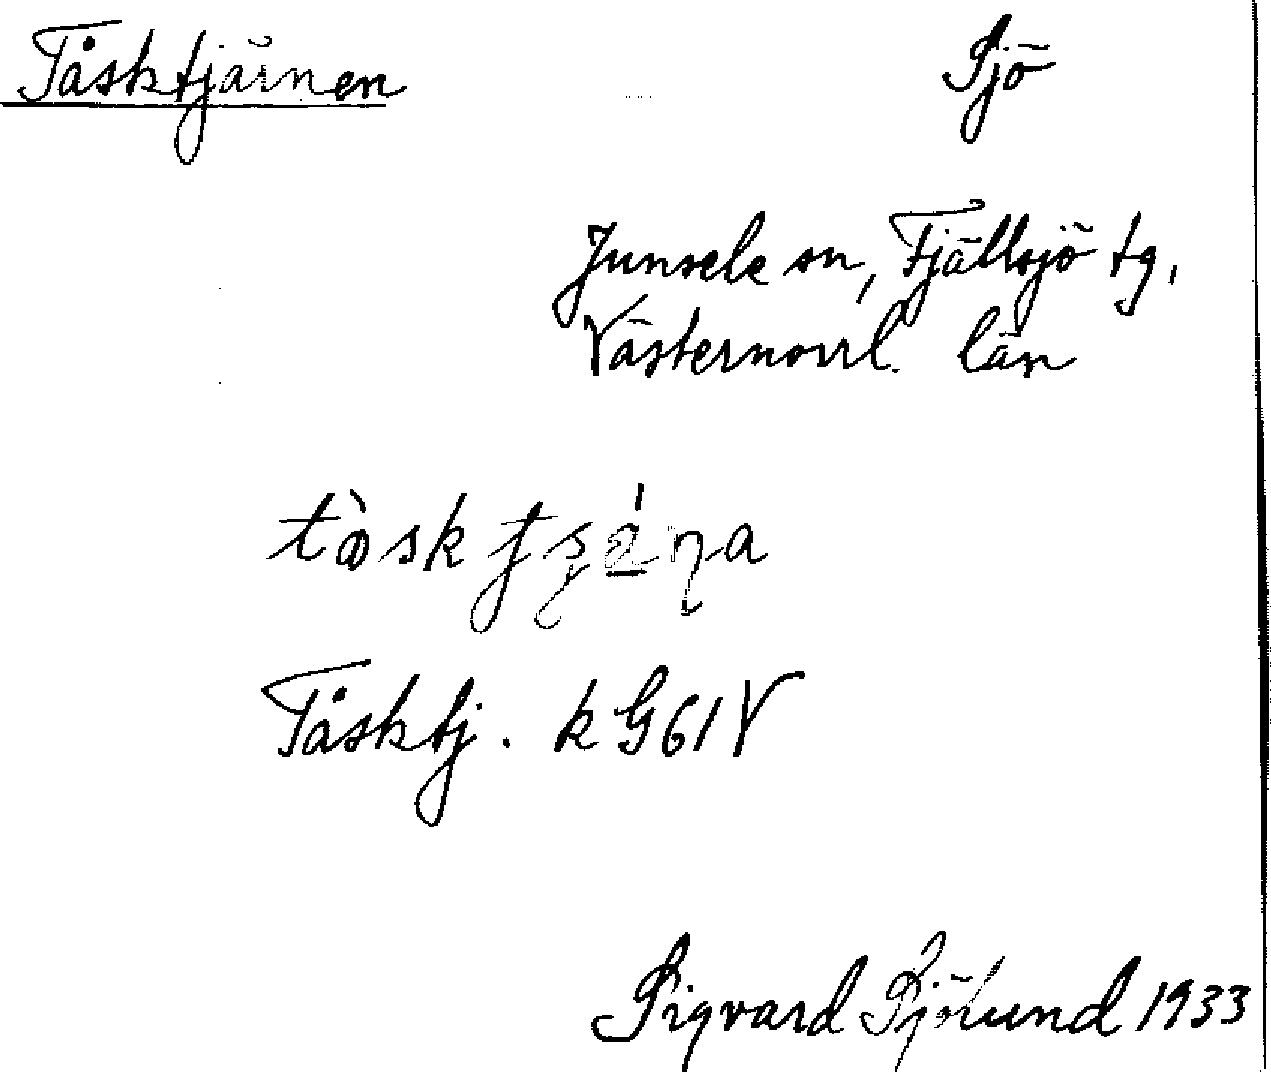 Tåsktjärnen Sjö
Junsele sn, Fjällsjö tg,
Västernorrl. län
Tåsktj. k G61V
Sigvard Sjölund 1933